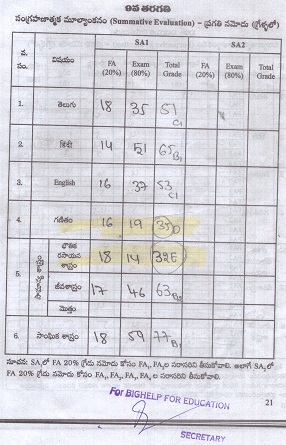 9వ తరగతి
సంగ్రహణాత్మక మూల్యాంకనం (Summative Evaluation) – ప్రగతి నమోదు (గ్రేళ్ళలో)
వ. సం. విషయం SA1 SA2
FA (20%) Exam (80%) Total Grade FA (20%) Exam (80%) Total Grade
1. తెలుగు 18 35 51 C1
2. हिन्दी 14 51 65 B1
3. English 16 37 53 C1
4. గణితం 16 19 35 D
5. సామాన్య శాస్త్రం
భౌతిక రసాయన శాస్త్రం 18 14 32 E
జీవశాస్త్రం 17 46 63
మొత్తం
6. సాంఘిక శాస్త్రం 18 59 77 B1
సూచన: SA₁లో FA 20% గ్రేడు నమోదు కోసం FA₁, FA₂ ల సరాసరిని తీసుకోవాలి. అలాగే SA₂లో
FA 20% గ్రేడు నమోదు కోసం FA₁, FA₂, FA₃, FA₄ ల సరాసరిని తీసుకోవాలి.
21
For BIGHELP FOR EDUCATION
SECRETARY